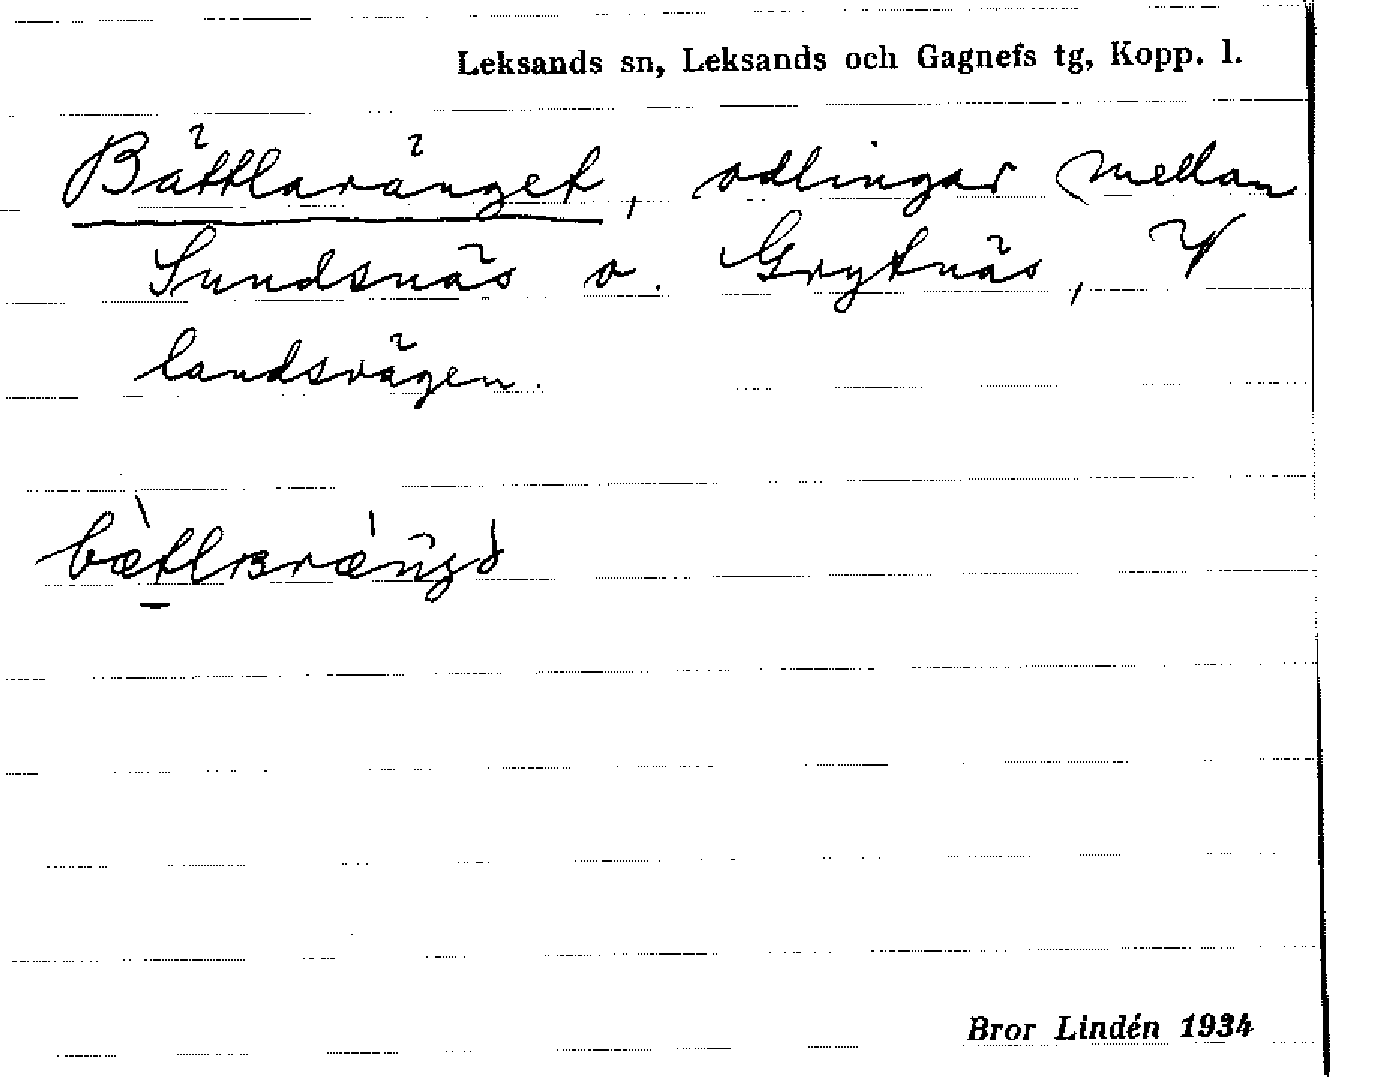 Leksands sn, Leksands och Gagnefs tg, Kopp. l.
Bättlaränget, odlingar mellan
Sundsnäs o. Grytnäs,
landsvägen.
Bror Lindén 1934